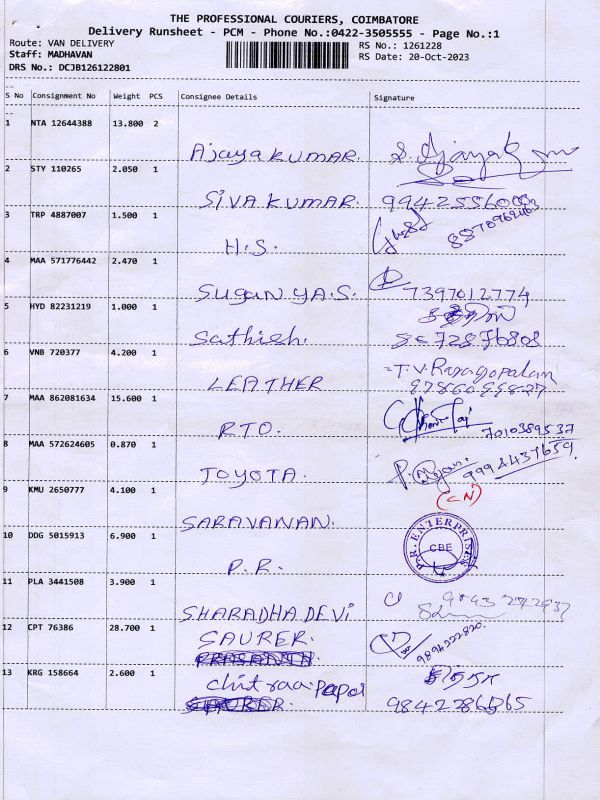 THE PROFESSIONAL COURIERS, COIMBATORE
Delivery Runsheet - PCM - Phone No.:0422-3505555 - Page No.:1
Route: VAN DELIVERY RS No.: 1261228
Staff: MADHAVAN RS Date: 20-Oct-2023
DRS No.: DCJB126122801
S No Consignment No Weight PCS Consignee Details Signature
1 NTA 12644388 13.800 2
AjayaKUMAR.
2 STY 110265 2.050 1
SIVA KUMAR. 9942556008
3 TRP 4887007 1.500 1
H.S.
4 MAA 571776442 2.470 1
SuganYA.S. 7397012774
5 HYD 82231219 1.000 1
Sathish. 8072876808
6 VNB 720377 4.200 1 T.V.Rajagopalan
LEATHER
7 MAA 862081634 15.600 1
RTO. 7010389537
8 MAA 572624605 0.870 1
TOYOTA. 9994437659.
9 KMU 2650777 4.100 1 (CN)
SARAVANAN.
10 DDG 5015913 6.900 1 P.R. ENTERPRISES CBE
P.R.
11 PLA 3441508 3.900 1
SHARADHA DEVi
12 CPT 76386 28.700 1 SAURER.
13 KRG 158664 2.600 1
chitraa papai
9842286565